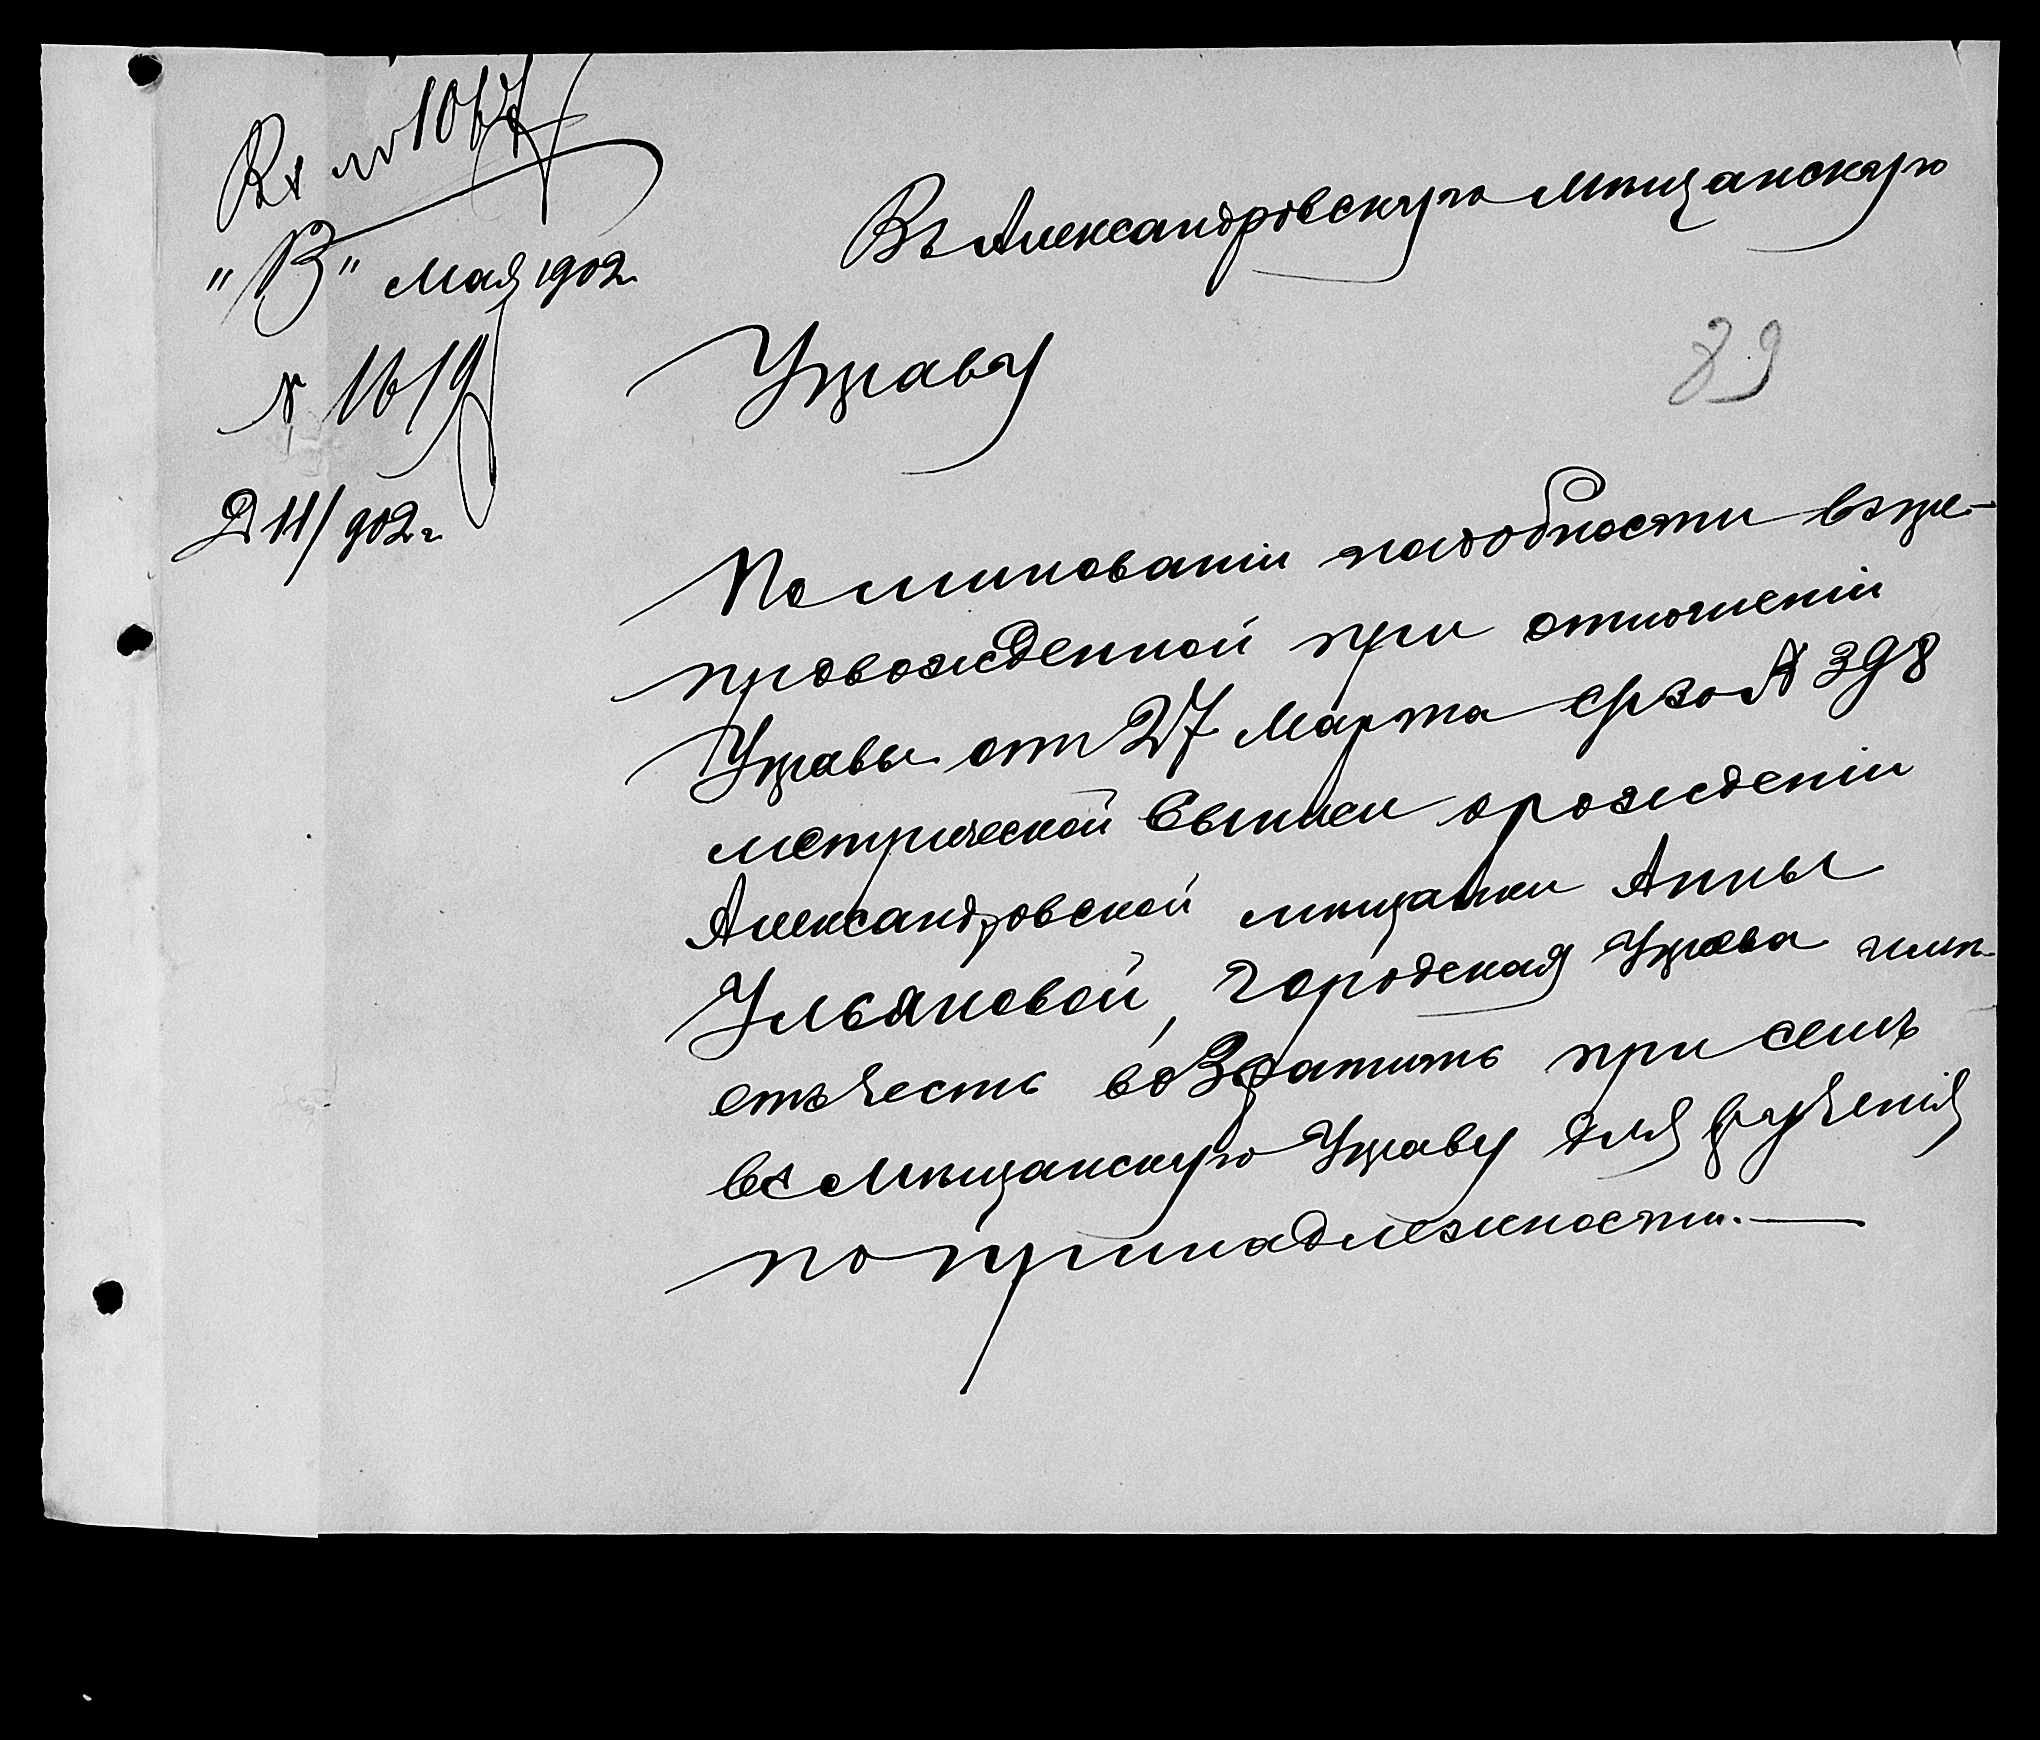 Вх № 1067
"13" мая 1902 г.
№ 1619
Д 11/902 г.
Въ Александровскую Мѣщанскую
Управу
89
По минованіи надобности въ пре-
провожденной при отношеніи
Управы отъ 27 Марта с/г за № 398
метрической выписи о рожденіи
Александровской мѣщанки Анны
Ульяновой, Городская Управа имѣ-
етъ честь возвратить при семъ
въ Мѣщанскую Управу для врученія
по принадлежности.